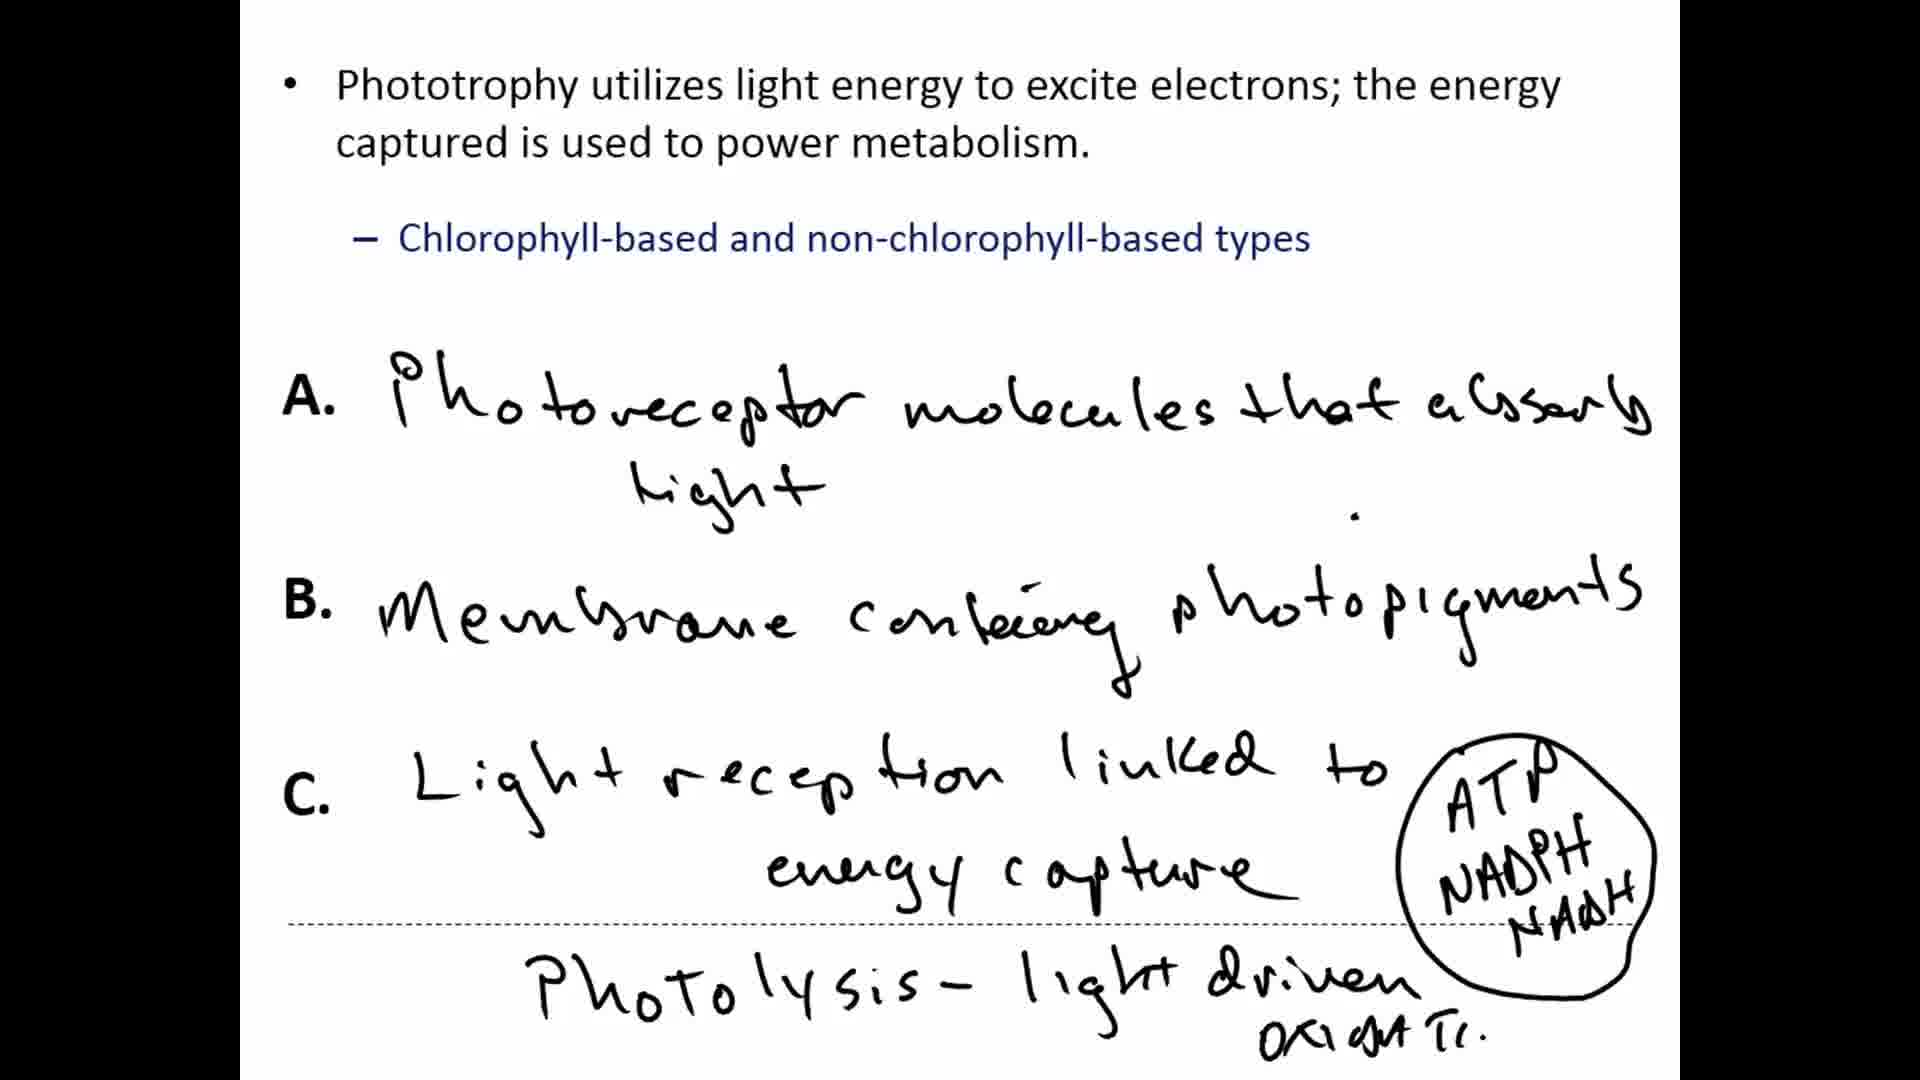 • Phototrophy utilizes light energy to excite electrons; the energy
captured is used to power metabolism.
– Chlorophyll-based and non-chlorophyll-based types
A. Photoreceptor molecules that absorb
light
B. Membrane containing photopigments
C. Light reception linked to
energy capture
ATP
NADPH
NADH
Photolysis - light driven